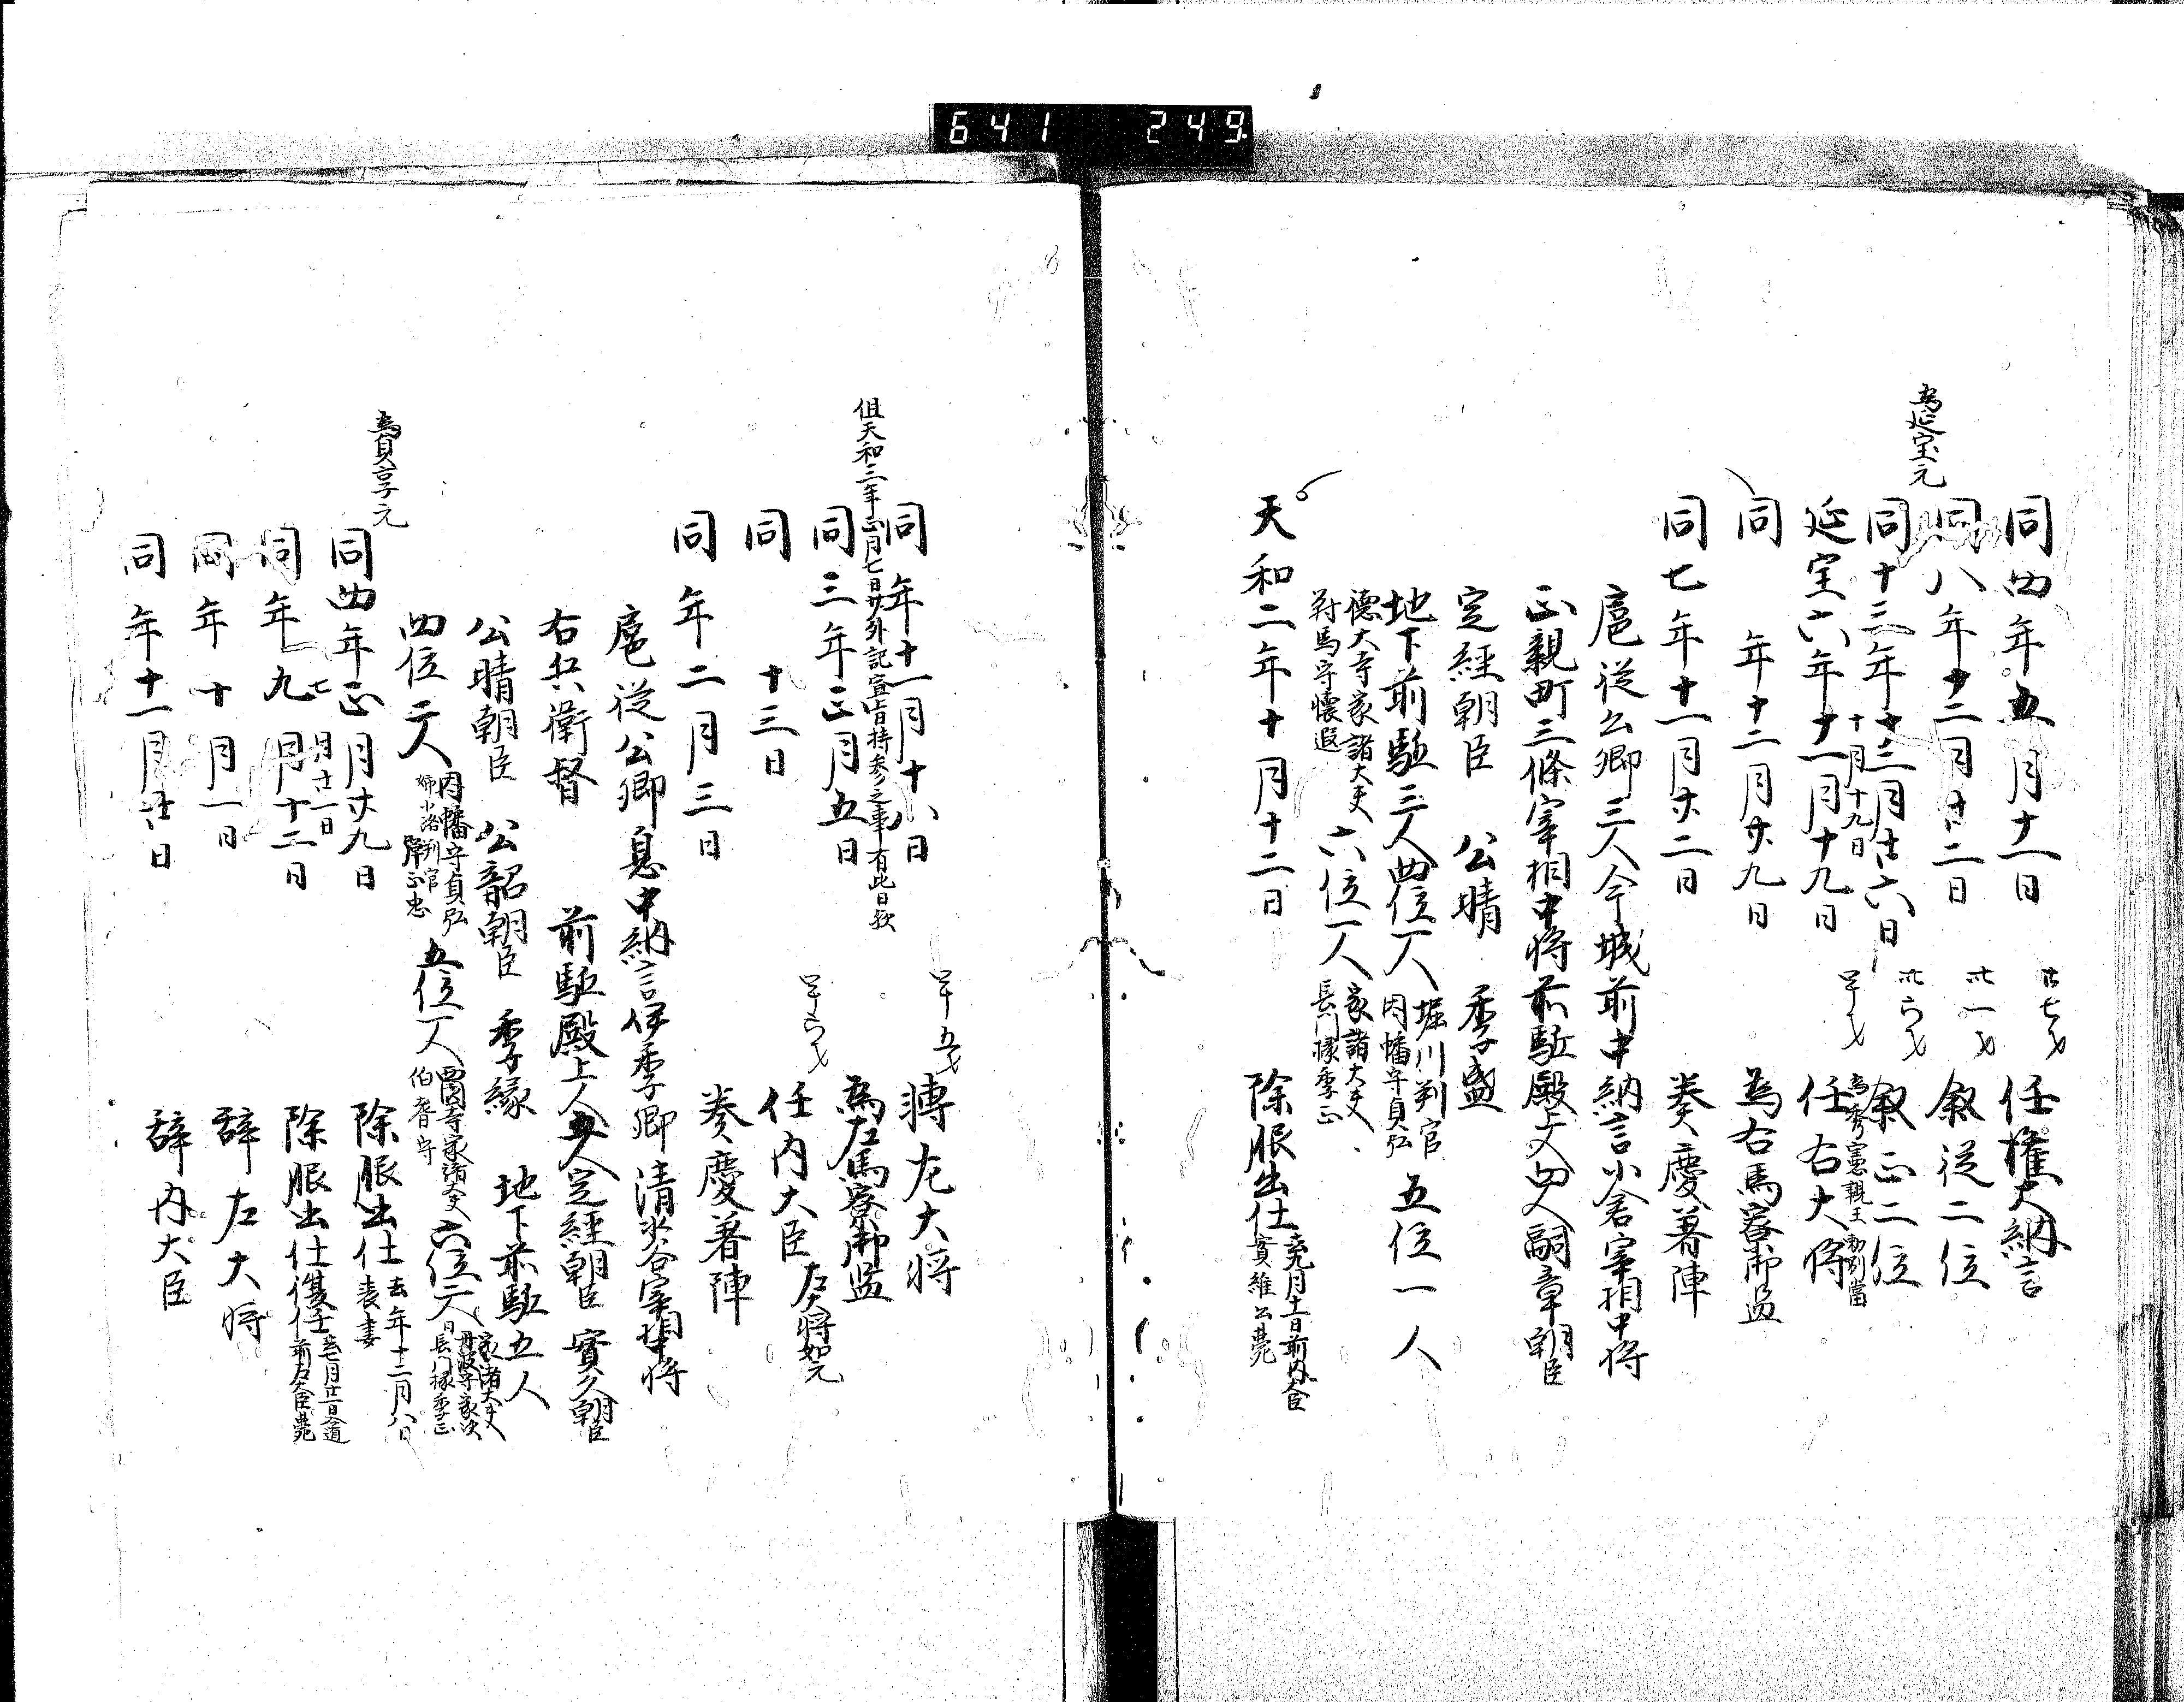 641 249
同四年五月十一日 廿七才 任権大納言
同八年十二月十二日 卅一才 叙従二位
為延宝元
同十三年十二月廿六日 卅六才 叙正二位
十月十九日 為秀憲親王勅別當
延宝六年十一月十九日 四十一才 任右大将
同 年十二月廿九日 為右馬寮御監
同七年十一月廿二日 奏慶着陣
扈従公卿三人今城前中納言小倉宰相中将
正親町三條宰相中将前駈殿上人四人嗣章朝臣
定経朝臣 公晴 季盛
地下前駈三人四位一人 堀川判官
因幡守貞弘 五位一人
徳大寺家諸大夫
対馬守懐遐 六位一人 家諸大夫
長門掾季正
天和二年十月十二日 除服出仕 去九月十一日前内大臣
実維公薨
同 年十一月十八日 四十五才 轉左大将
但天和三年正月七日外記宣旨持参之事有此日歟
同三年正月五日 為左馬寮御監
同 十三日 四十六才 任内大臣 左大将如元
同 年二月三日 奏慶著陣
扈従公卿息中納言伊季卿清水谷宰相中将
右兵衛督 前駈殿上人五人定経朝臣 實久朝臣
公晴朝臣 公韶朝臣 季縁 地下前駈五人
四位二人 因幡守貞弘
姉小路判官
五位一人 西園寺家諸大夫
伯耆守
六位二人 家諸大夫
丹波守家次
同長門掾季正
為貞享元
同四年正月廿九日 除服出仕 去年十二月八日
喪妻
七月廿一日
同 年九月十二日 除服出仕復任 去七月廿一日入道
前左大臣薨
同 年十月一日 辞左大将
同 年十一月 日 辞内大臣